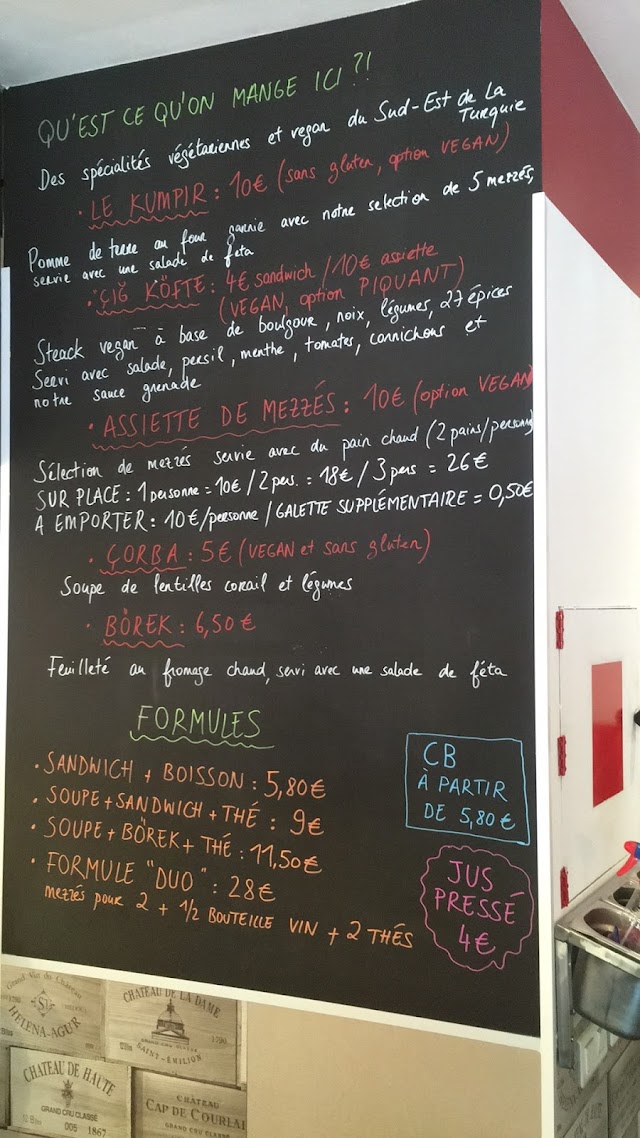 QU'EST CE QU'ON MANGE ICI ?!
Des spécialités végétariennes et vegan du Sud-Est de La
Turquie
• LE KUMPIR : 10€ (sans gluten, option VEGAN)
Pomme de terre au four garnie avec notre selection de 5 mezzés,
servie avec une salade de feta
• ÇIĞ KÖFTE : 4€ sandwich / 10€ assiette
(VEGAN, option PIQUANT)
Steack vegan à base de boulgour, noix, légumes, 27 épices
Servi avec salade, persil, menthe, tomates, cornichons et
notre sauce grenade
• ASSIETTE DE MEZZÉS : 10€ (option VEGAN)
Sélection de mezzés servie avec du pain chaud (2 pains/personne)
SUR PLACE : 1 personne = 10€ / 2 pers. = 18€ / 3 pers = 26€
A EMPORTER : 10€/personne / GALETTE SUPPLÉMENTAIRE = 0,50€
• ÇORBA : 5€ (VEGAN et sans gluten)
Soupe de lentilles corail et légumes
• BÖREK : 6,50€
Feuilleté au fromage chaud, servi avec une salade de féta
FORMULES
• SANDWICH + BOISSON : 5,80€
• SOUPE + SANDWICH + THÉ : 9€
• SOUPE + BÖREK + THÉ : 11,50€
• FORMULE "DUO" : 28€
mezzés pour 2 + 1/2 BOUTEILLE VIN + 2 THÉS
CB
À PARTIR
DE 5,80€
JUS
PRESSÉ
4€
Grand Vin du Château
HELENA-AGUR
CHATEAU DE LA DAME
1790
SAINT-EMILION
CHATEAU DE HAUTE
GRAND CRU CLASSÉ
005 1867
CHATEAU
CAP DE COURLAI
GRAND CRU CLASSÉ